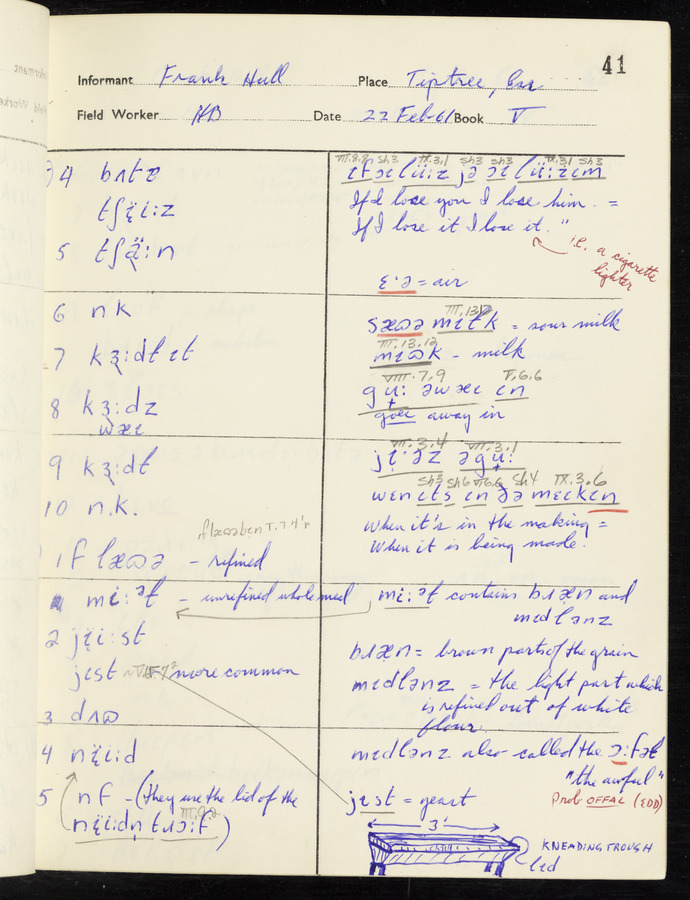 41
Informant Frank Hull Place Tiptree, Ess.
Field Worker HB Date 22 Feb 61 Book V
34 bʌtə
tʃɛ̈i:z
5 tʃɑ̈:n
6 nk
7 kɜ:dtɪt
8 kɜ:dz
wæɪ
9 kɜ:dt
10 n.k.
flæʊəbɪn
1 flæʊə – refined
mi:ət – unrefined whole meal
2 jɛ̈i:st
jɪst more common
3 dʌʊ
4 nɛ̈i:d
5 nf – (they use the lid of the
nɛ̈i:dn̩ tɹɔ:f)
VIII.8.8 Sh3 IX.3.1 Sh3 Sh3 IX.3.1 Sh3
If I lose you I lose him. =
If I lose it I lose it."
i.e. a cigarette
lighter
ɛ:ə = air
III.13.12
sæʊə mɪlk = sour milk
III.13.12
mɪʊk – milk
VIII.7.9 V.6.6
gu: əwæɪ ɪn
goes away in
VII.3.4 VII.3.1
jɪ:əz əgu:
Sh3 Sh6 V.6.6 Sh4 IX.3.6
wen ɪts ɪn ðə mɛɪkɪn
when it's in the making =
when it is being made.
mi:ət contains bɹæn and
mɪdlənz
bɹæn = brown parts of the grain
mɪdlənz = the light part which
is refined out of white
flour.
mɪdlənz also called the ɔ:fəl
"the awful"
Prob OFFAL (EDD)
jɪst = yeast
3'
KNEADING TROUGH
lid